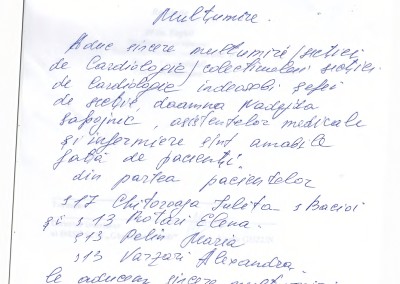 Mulțumire.
Aduc sincere mulțumiri secției
de Cardiologie, colectivului secției
de Cardiologie îndeosebi șefei
de secție, doamna Nadejda
asistentelor medicale
și infermiere sînt amabile
față de pacienți.
din partea pacientelor
s 17 Chitoroaga Iulita s Bacioi
și s 13 Rotari Elena.
s 13 Pelin Maria
s 13 Varzari Alexandra.
le aducem sincere mulțumiri